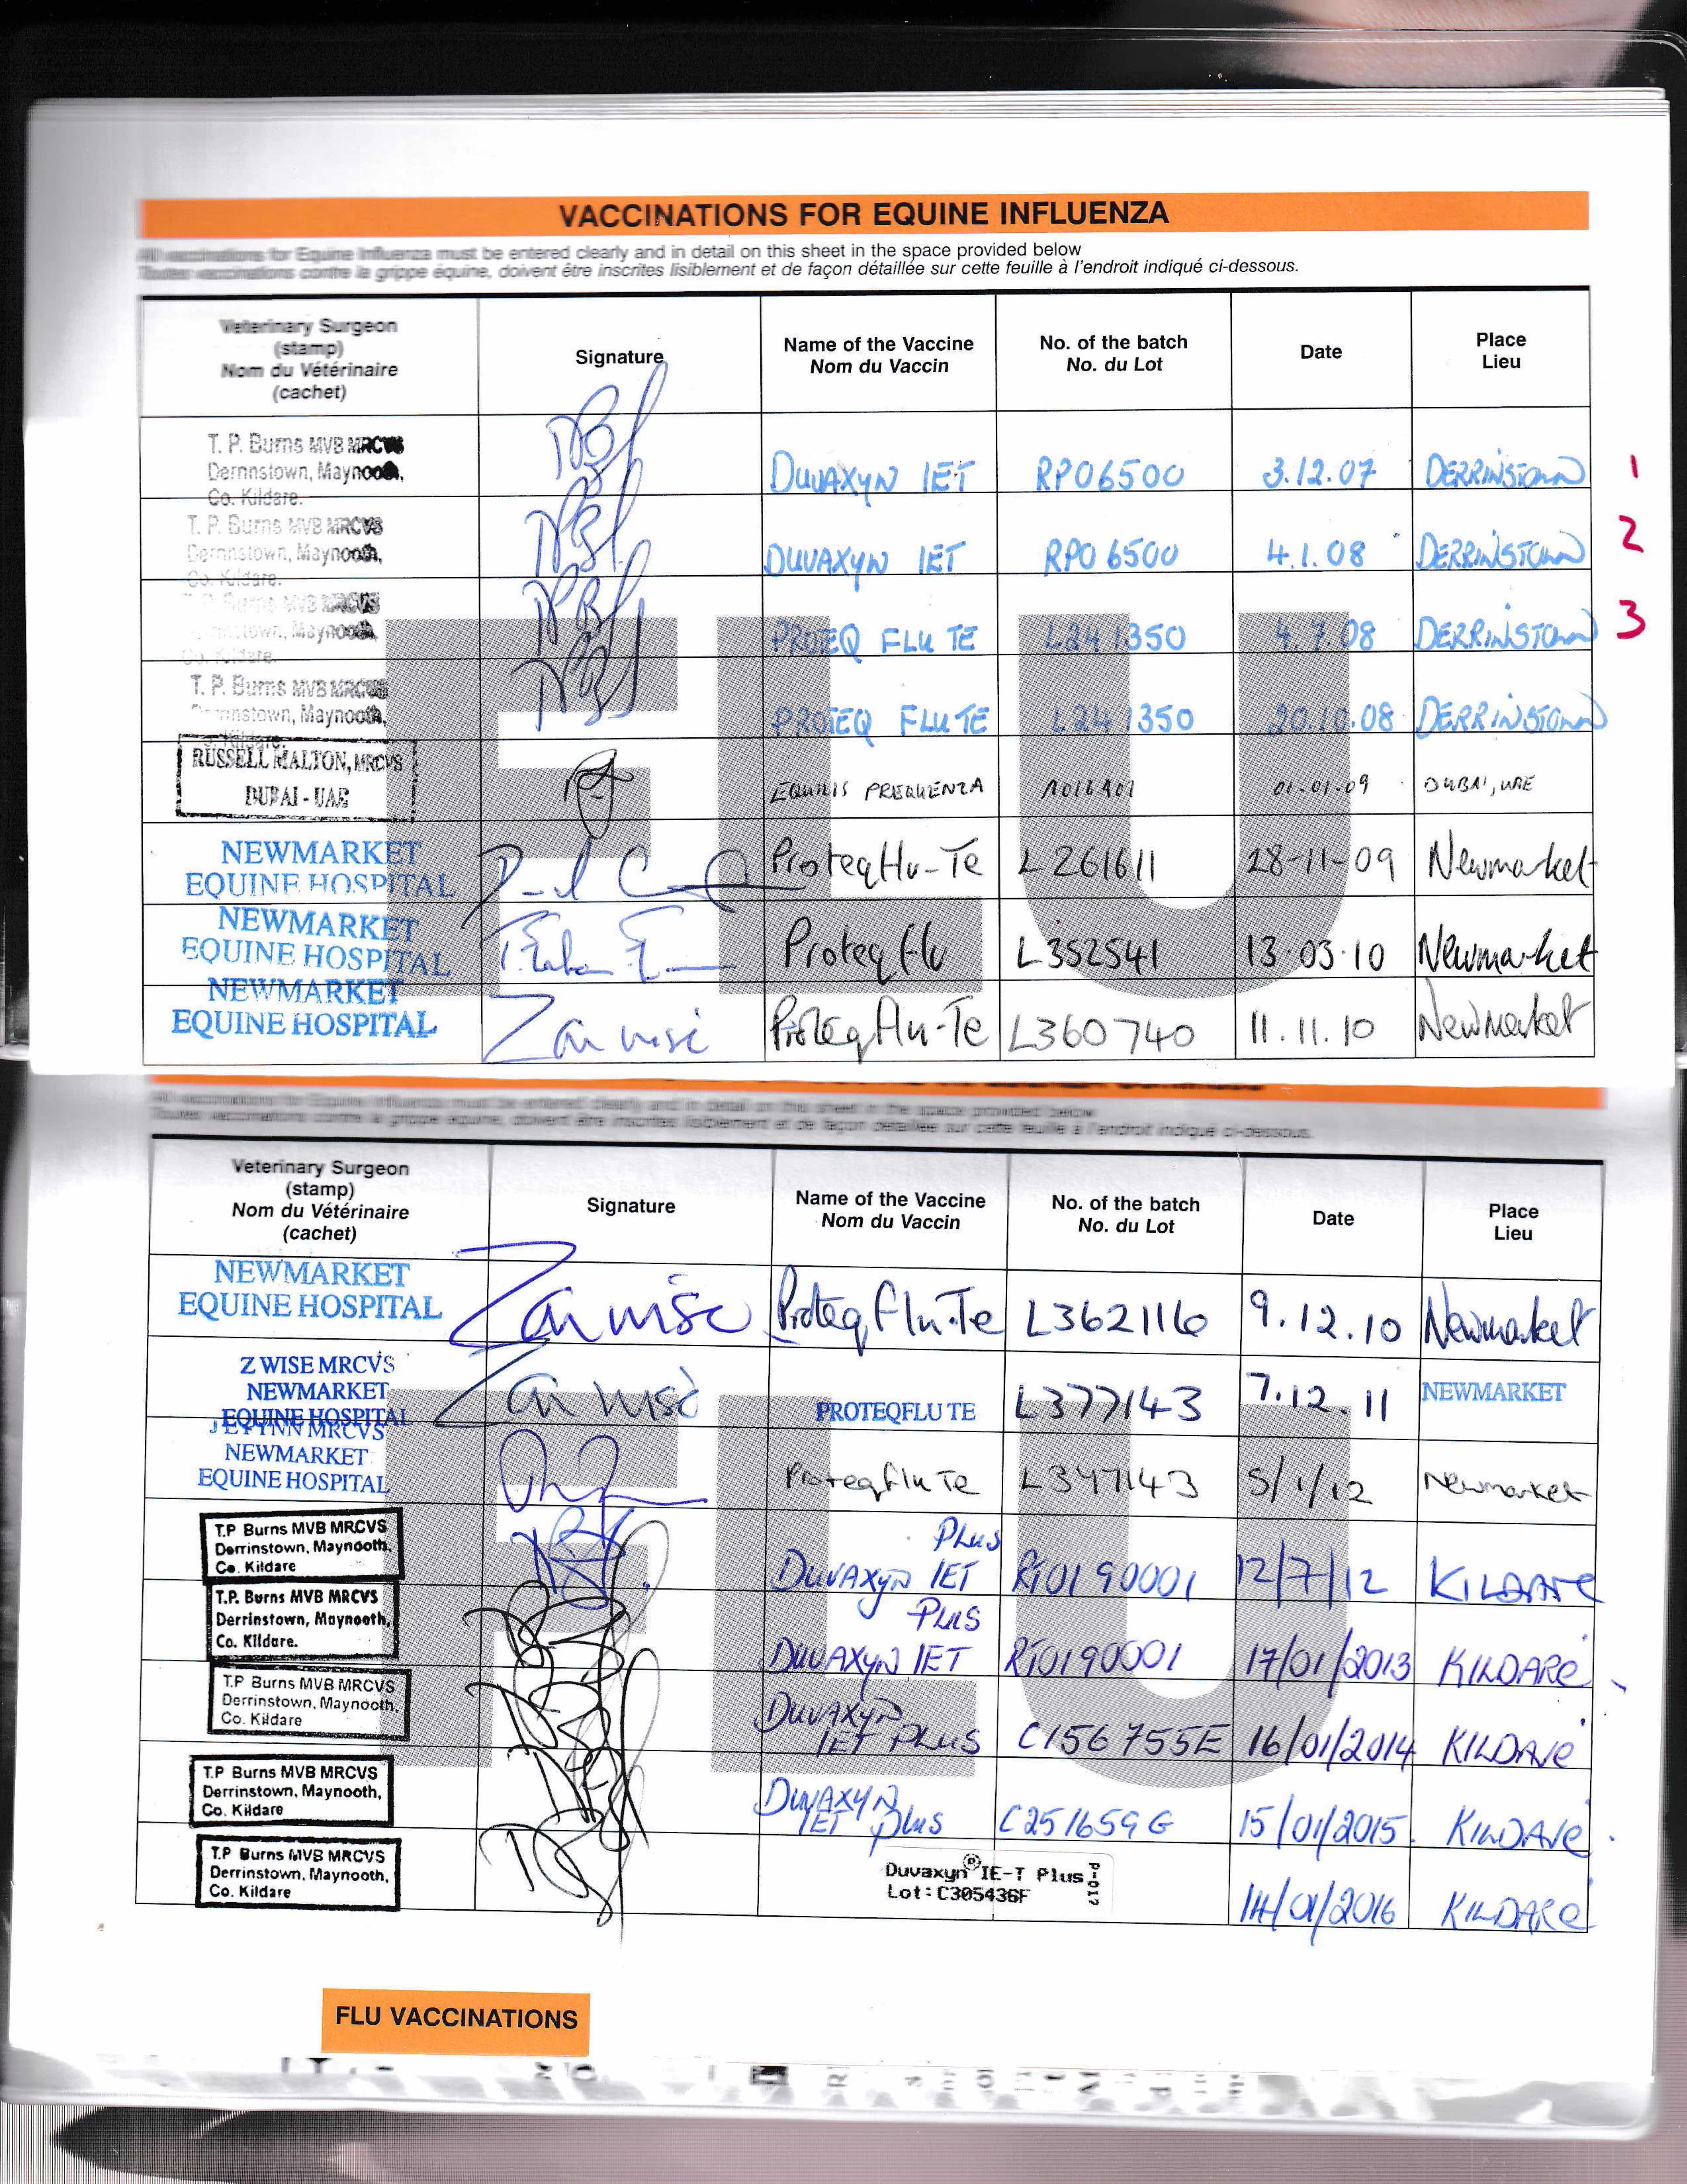 VACCINATIONS FOR EQUINE INFLUENZA
All vaccinations for Equine Influenza must be entered clearly and in detail on this sheet in the space provided below
Toutes vaccinations contre la grippe équine, doivent être inscrites lisiblement et de façon détaillée sur cette feuille à l'endroit indiqué ci-dessous.
Veterinary Surgeon
(stamp)
Nom du Vétérinaire
(cachet)
Signature
Name of the Vaccine
Nom du Vaccin
No. of the batch
No. du Lot
Date
Place
Lieu
T. P. Burns MVB MRCVS
Derrinstown, Maynooth,
Co. Kildare.
DUVAXYN IET RP06500 3.12.07 DERRINSTOWN 1
T. P. Burns MVB MRCVS
Derrinstown, Maynooth,
Co. Kildare.
DUVAXYN IET RP06500 4.1.08 DERRINSTOWN 2
T. P. Burns MVB MRCVS
Derrinstown, Maynooth,
Co. Kildare.
PROTEQ FLU TE L241350 4.7.08 DERRINSTOWN 3
T. P. Burns MVB MRCVS
Derrinstown, Maynooth,
Kildare.
PROTEQ FLU TE L241350 20.10.08 DERRINSTOWN
RUSSELL MALTON, MRCVS
DUBAI - UAE
EQUILIS PREQUENZA A016A01 01.01.09 DUBAI, UAE
NEWMARKET
EQUINE HOSPITAL
ProteqFlu-Te L261611 28-11-09 Newmarket
NEWMARKET
EQUINE HOSPITAL
Proteq flu L352541 13.03.10 Newmarket
NEWMARKET
EQUINE HOSPITAL
Proteqflu-Te L360740 11.11.10 Newmarket
FLU
All vaccinations for Equine Influenza must be entered clearly and in detail on this sheet in the space provided below
Toutes vaccinations contre la grippe équine, doivent être inscrites lisiblement et de façon détaillée sur cette feuille à l'endroit indiqué ci-dessous.
Veterinary Surgeon
(stamp)
Nom du Vétérinaire
(cachet)
Signature
Name of the Vaccine
Nom du Vaccin
No. of the batch
No. du Lot
Date
Place
Lieu
NEWMARKET
EQUINE HOSPITAL
Proteqflu-Te L362116 9.12.10 Newmarket
Z WISE MRCVS
NEWMARKET
EQUINE HOSPITAL
PROTEQFLU TE L377143 7.12.11 NEWMARKET
MRCVS
NEWMARKET
EQUINE HOSPITAL
Proteqflu Te L347143 5/1/12 Newmarket
T.P Burns MVB MRCVS
Derrinstown, Maynooth,
Co. Kildare
DUVAXYN IET PLUS RT0190001 12/7/12 KILDARE
T.P. Burns MVB MRCVS
Derrinstown, Maynooth,
Co. Kildare.
DUVAXYN IET PLUS RT0190001 17/01/2013 KILDARE
T.P Burns MVB MRCVS
Derrinstown, Maynooth,
Co. Kildare
DUVAXYN
IET PLUS C156755E 16/01/2014 KILDARE
T.P Burns MVB MRCVS
Derrinstown, Maynooth,
Co. Kildare
DUVAXYN
IET plus C251659G 15/01/2015 KILDARE
T.P Burns MVB MRCVS
Derrinstown, Maynooth,
Co. Kildare
Duvaxyn® IE-T Plus
Lot: C305436F
P-017
14/01/2016 KILDARE
FLU
FLU VACCINATIONS